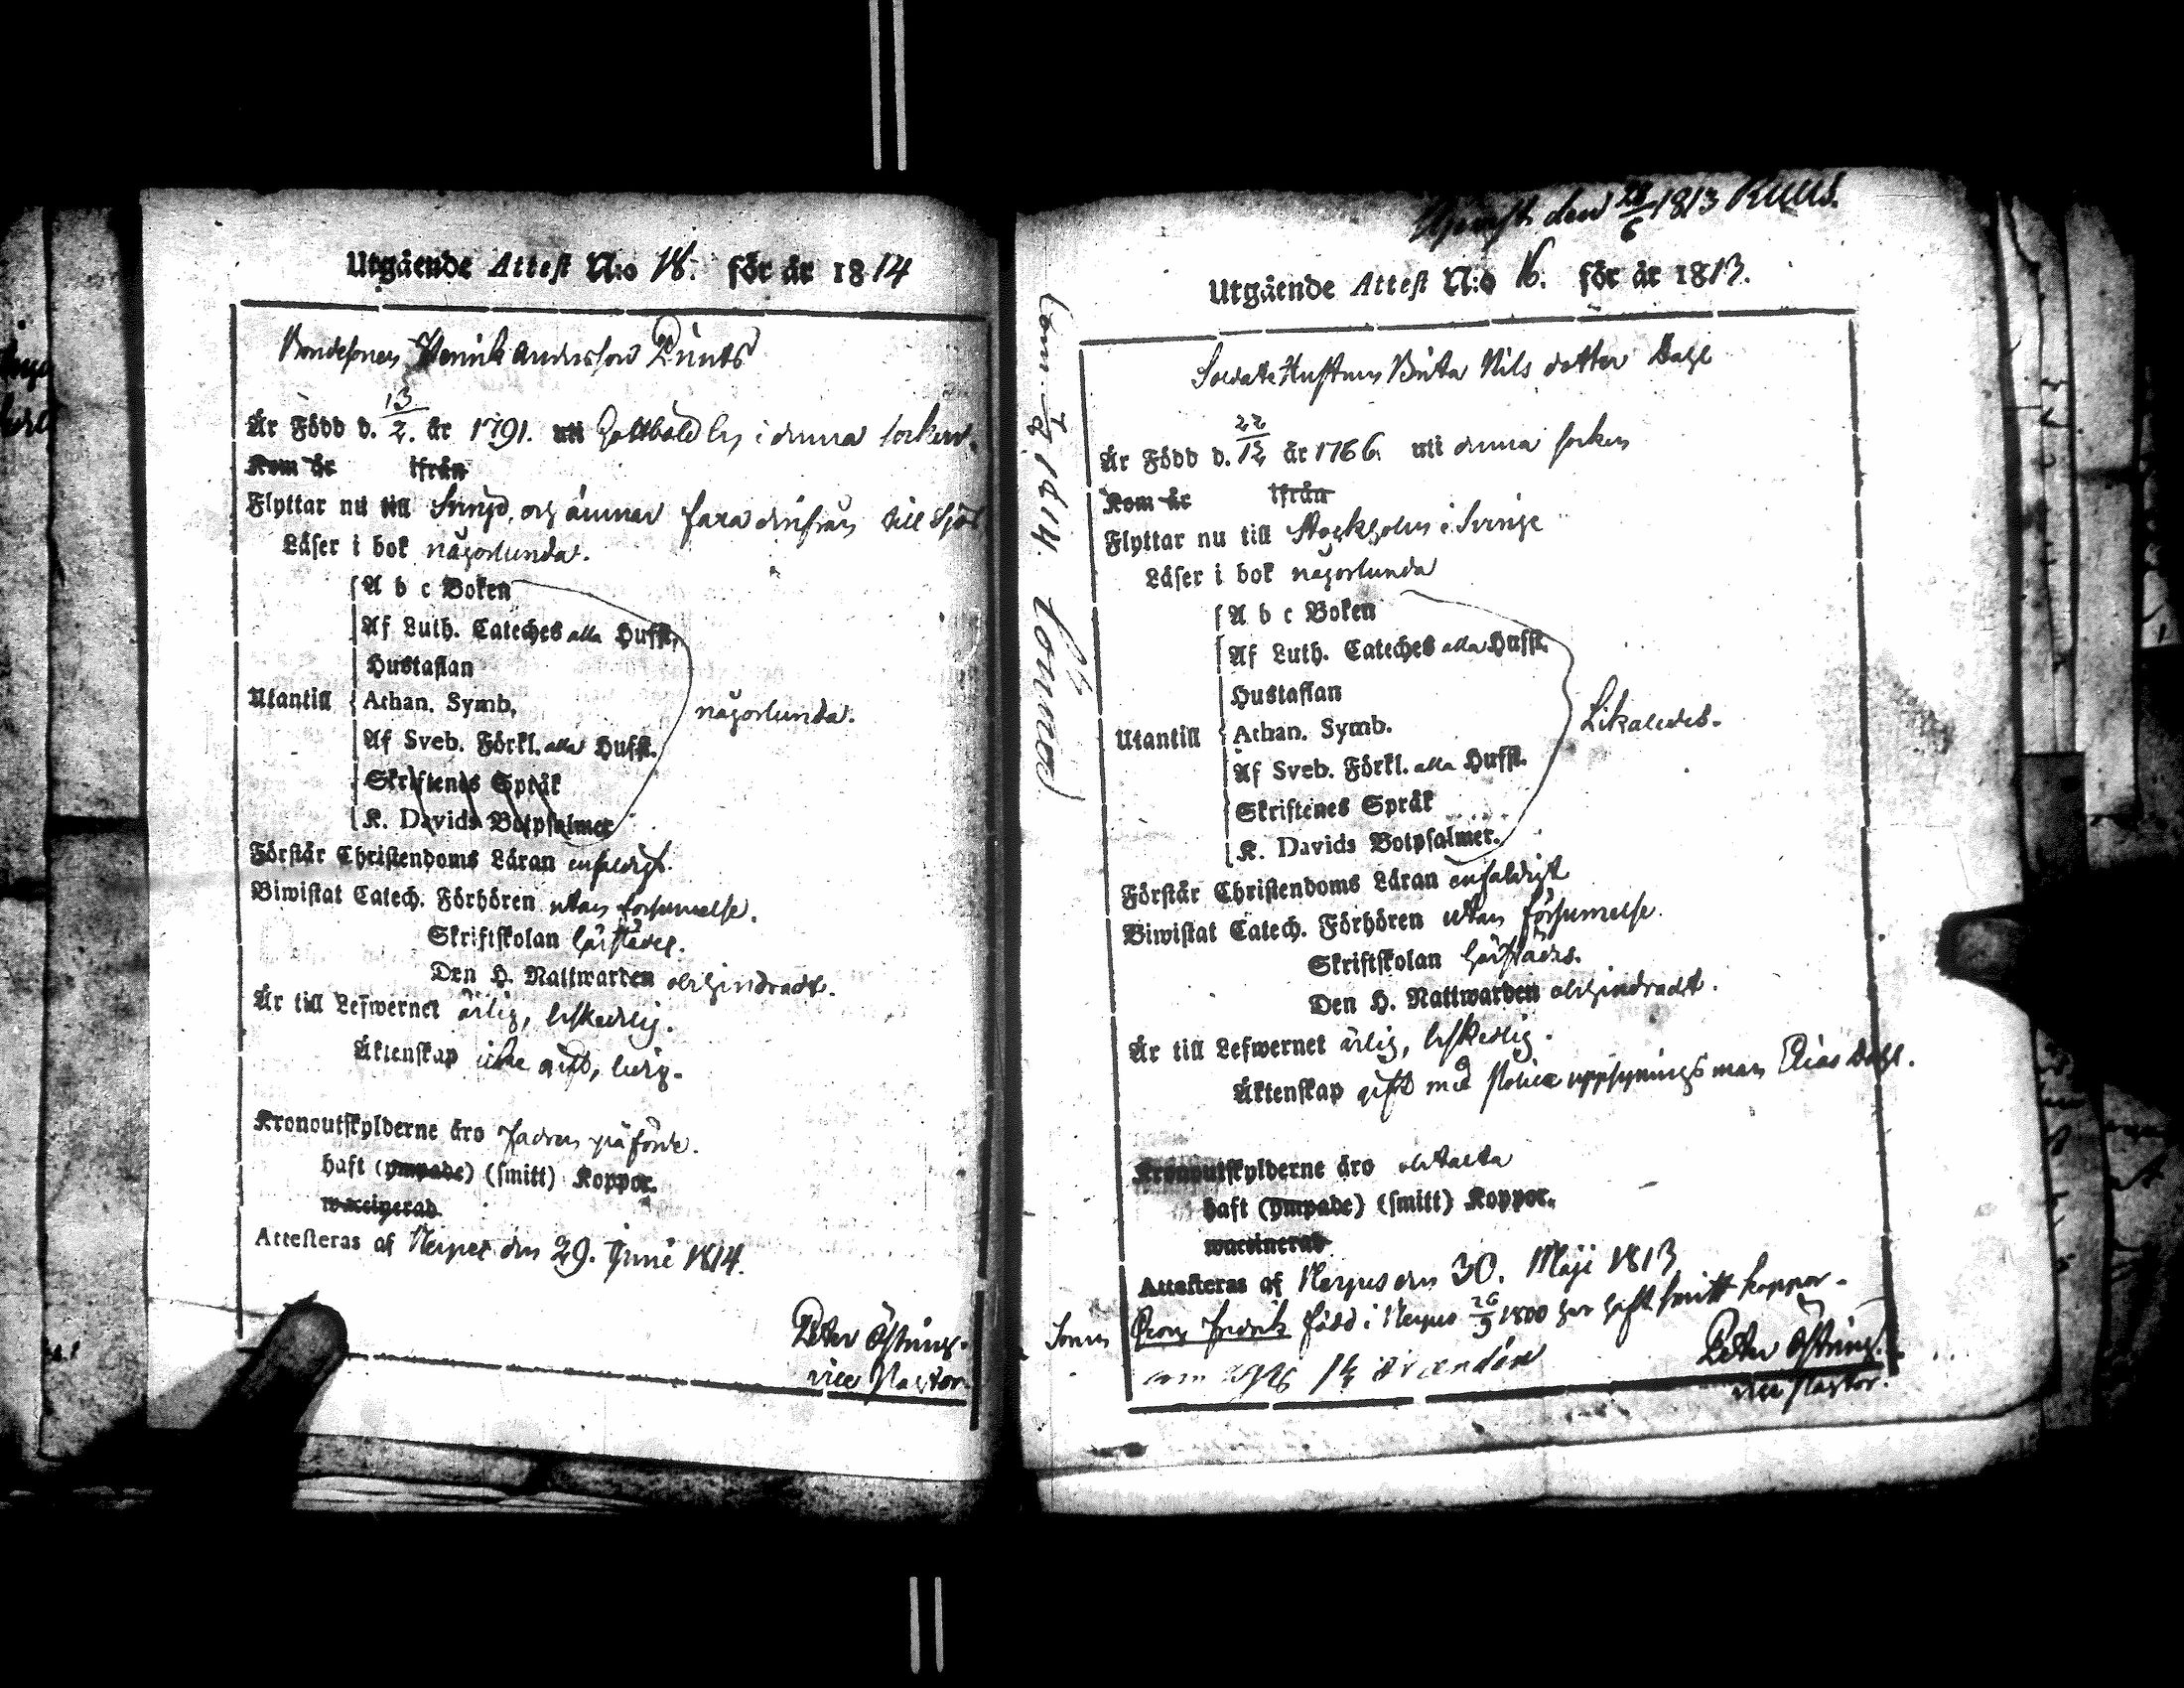 Utgående Attest N:o 18. för år 1814
Bondesonen Henrik Andersson Punts
År Född d. 13/2. år 1791. uti Gottböle by i denna socken.
Kom år ifrån
Flyttar nu till och ämnar fara därifrån till Sjös
Läser i bok någorlunda.
A b c Boken
Af Luth. Cateches alla Hufst.
Hustaflan
Utantill Athan. Symb. någorlunda.
Af Sveb. Förkl. alla Hufst.
Skriftenes Språk
K. Davids Botpsalmer
Förstår Christendoms Läran enfaldigt.
Biwistat Catech. Förhören utan försumelse.
Skriftskolan härstädes.
Den H. Nattwarden obehindradt.
År till Lefwernet ärlig, beskedlig.
Äktenskap icke gift, ledig.
Kronoutskylderne äro fadren påförde.
haft (ympade) (smitt) Koppor.
waccinerad
Attesteras af Nerpes den 29. Junii 1814.
Peter Östring.
vice Pastor.
den 28/6 1813
Utgående Attest N:o 16. för år 1813.
Soldats Hustrun Brita Nils dotter Dahl
År Född d. 22/12 år 1766. uti denna socken
Kom år ifrån
Flyttar nu till Stockholm i Sverige
Läser i bok någorlunda
A b c Boken
Af Luth. Cateches alla Hufst.
Hustaflan
Utantill Athan. Symb. Likaledes.
Af Sveb. Förkl. alla Hufst.
Skriftenes Språk
K. Davids Botpsalmer.
Förstår Christendoms Läran enfaldigt
Biwistat Catech. Förhören utan försumelse.
Skriftskolan härstädes.
Den H. Nattwarden obehindradt.
År till Lefwernet ärlig, beskedlig.
Äktenskap gift med Police uppsyningsman Elias Dahl.
Kronoutskylderne äro obetalta
haft (ympade) (smitt) Koppor.
waccinerad
Attesteras af Nerpes den 30. Maji 1813
Sonen Fredrik född i Nerpes 26/9 1800 har haft smitt koppor.
Peter Östring.
vice Pastor.
1814.